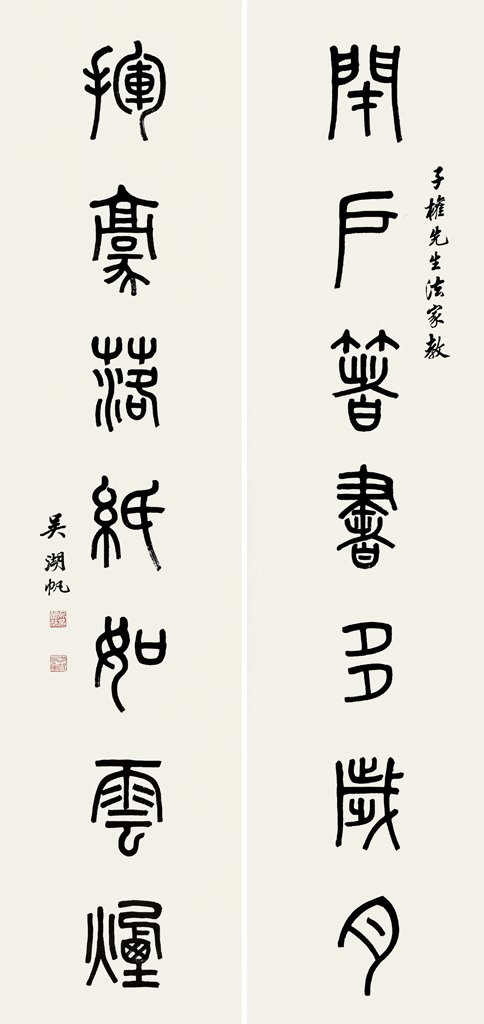 閉戶箸書多歲月
子先生法家教
揮豪落紙如雲煙
吳湖帆